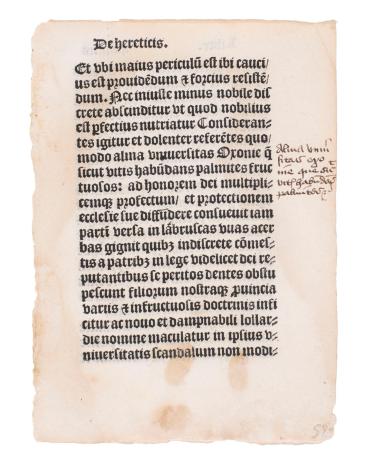 De hereticis.
Et vbi maius periculũ est ibi cauci⸗
us est prouidẽdum ⁊ forcius resistẽ⸗
dum. Nec iniuste minus nobile dis
crete abscinditur vt quod nobilius
est ꝑfectius nutriatur Consideran⸗
tes igitur et dolenter referẽtes quo⸗
modo alma vniuersitas Oxonie q̃
sicut vitis habũdans palmites fruc
tuosos: ad honorem dei multipli⸗
cemqꝫ profectum/ et protectionem
ecclesie sue diffũdere consueuit iam
partĩ versa in labruscas vuas acer
bas gignit quibꝫ indiscrete cõmes⸗
tis a patribꝫ in lege videlicet dei re⸗
putantibus se peritos dentes obstu
pescunt filiorum nostraqꝫ ꝓuincia
variis ⁊ infructuosis doctrinis infi
citur ac nouo et dampnabili lollar⸗
die nomine maculatur in ipsius v⸗
niuersitatis scandalum non modi⸗